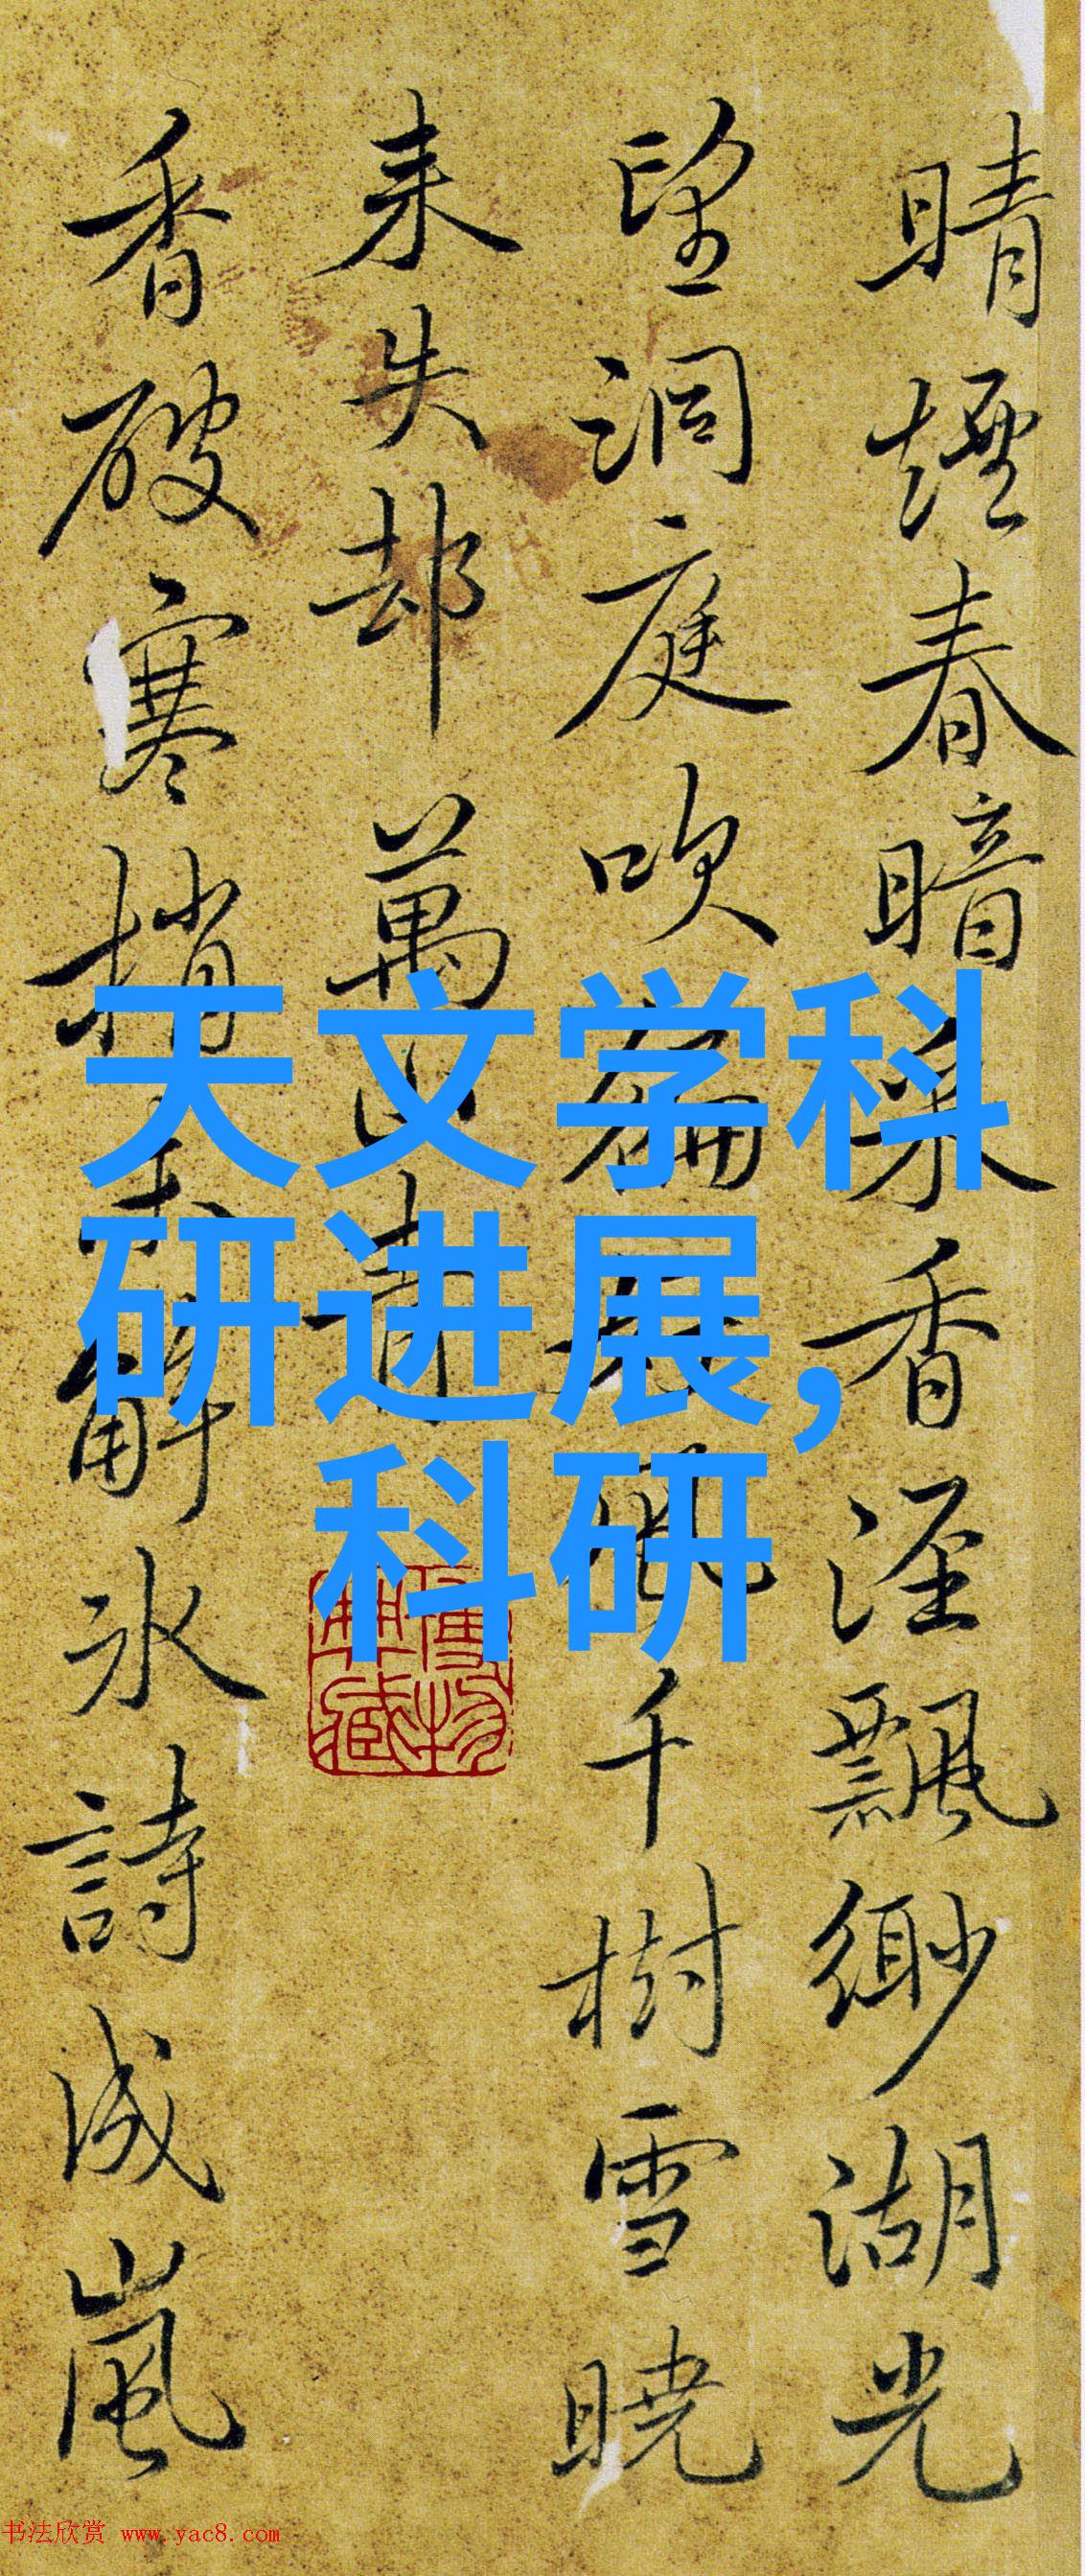 晴煙春暗 香溼飄緲湖光
望洞庭吹 千樹雪曉
来失却萬
香破寒梢 解氷詩成嵐
天文学科
研进展,
科研
书法欣赏 www.yac8.com